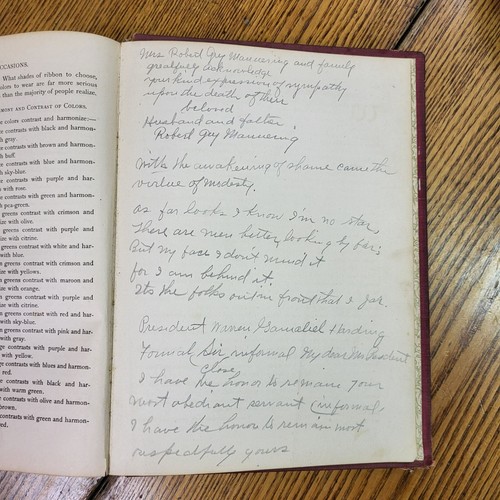 CCASIONS.
What shades of ribbon to choose,
olors to wear are far more serious
than the majority of people realize.
MONY AND CONTRAST OF COLORS.
e colors contrast and harmonize:—
contrasts with black and harmon-
with gray.
contrasts with brown and harmon-
h buff.
contrasts with blue and harmon-
with sky-blue.
contrasts with purple and har-
with rose.
contrasts with green and harmon-
h pea-green.
greens contrast with crimson and
ize with olive.
greens contrast with purple and
ize with citrine.
en contrasts with white and har-
with blue.
n greens contrast with crimson and
ize with yellows.
n greens contrast with maroon and
ize with orange.
n greens contrast with purple and
ize with citrine.
n greens contrast with red and har-
with sky-blue.
n greens contrast with pink and har-
with gray.
nge contrasts with purple and har-
with yellow.
nge contrasts with blues and harmon-
with red.
nge contrasts with black and har-
with warm green.
nge contrasts with olive and harmon-
brown.
contrasts with green and harmon-
red.
Mrs. Robert Grey Mannering and family
greatfully acknowledge
your kind expression of sympathy
upon the death of their
beloved
Husband and father
Robert Grey Mannering
With the awakening of shame came the
virtue of modesty.
As for looks I know I'm no star,
There are men better looking by far;
But my face I don't mind it
for I am behind it.
Its the folks out in front that I jar.
President Warren Gamaliel Harding
Formal Sir, informal My dear Mr. President
Close,
I have the honor to remain your
most obediant servant (informal,
I have the honor to remain most
respectfully yours